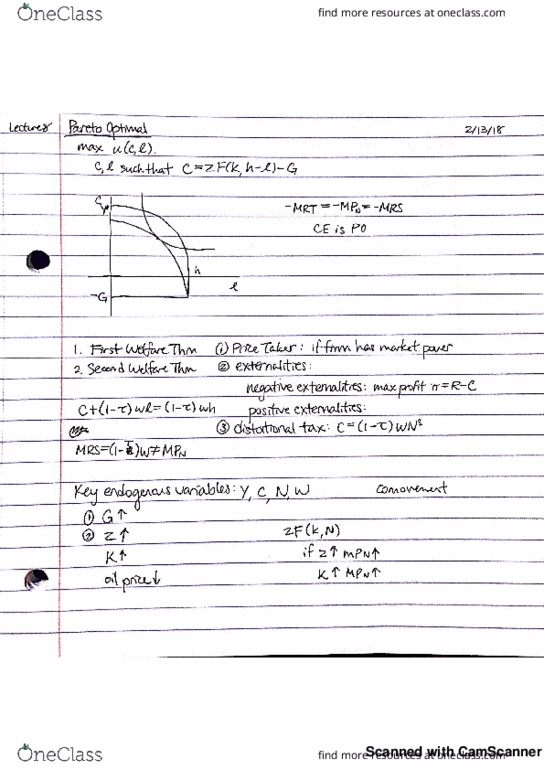 OneClass
find more resources at oneclass.com
Lecture8 Pareto Optimal 2/13/18
max u(c,l).
c,l such that C=zF(k,h-l)-G
C,Y
-MRT = -MPN = -MRS
CE is PO
h
l
-G
1. First Welfare Thm ① Price Taker: if firm has market power
2. Second Welfare Thm ② externalities:
negative externalities: max profit π=R-C
C+(1-τ)wl=(1-τ)wh positive externalities:
③ distortional tax: C=(1-τ)WNˢ
MRS=(1-τ)W≠MPN
Key endogenous variables: Y, C, N, W comovement
① G↑
② Z↑ ZF(k,N)
K↑ if z↑ MPN↑
oil price↓ K↑ MPN↑
OneClass
find more resources at oneclass.com
Scanned with CamScanner